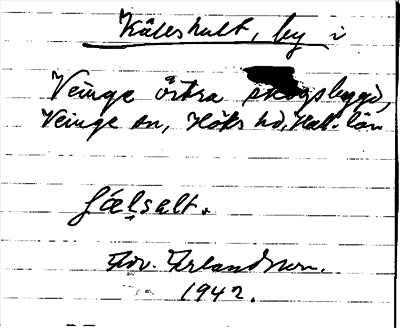 Källeshult, by i
Veinge östra skogsbygd,
Veinge sn, Höks hd, Hall. län
fǽlsalt.
Edv. Erlandsson.
1942.